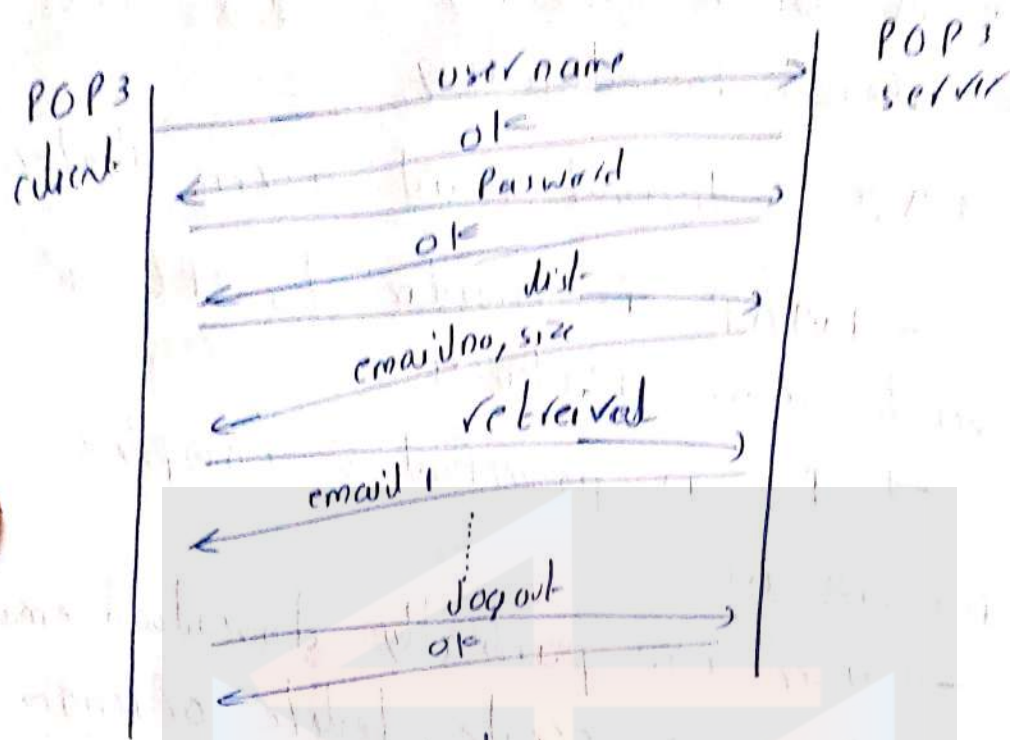 POP3 client
POP3 server
username
ok
Password
ok
list
email no, size
retreival
email 1
logout
ok